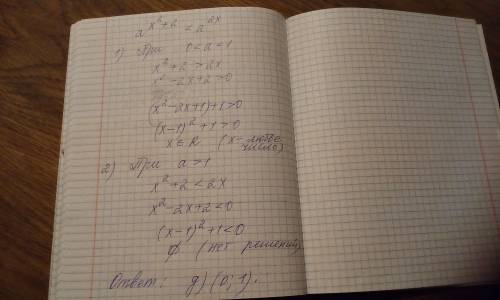 a^(x²+2) < a^(2x)
1) При 0<a<1
x²+2 > 2x
x²-2x+2>0
(x²-2x+1)+1>0
(x-1)²+1>0
x∈R (x-любое число)
2) При a>1
x²+2<2x
x²-2x+2<0
(x-1)²+1<0
∅ (нет решений)
Ответ: д) (0; 1).